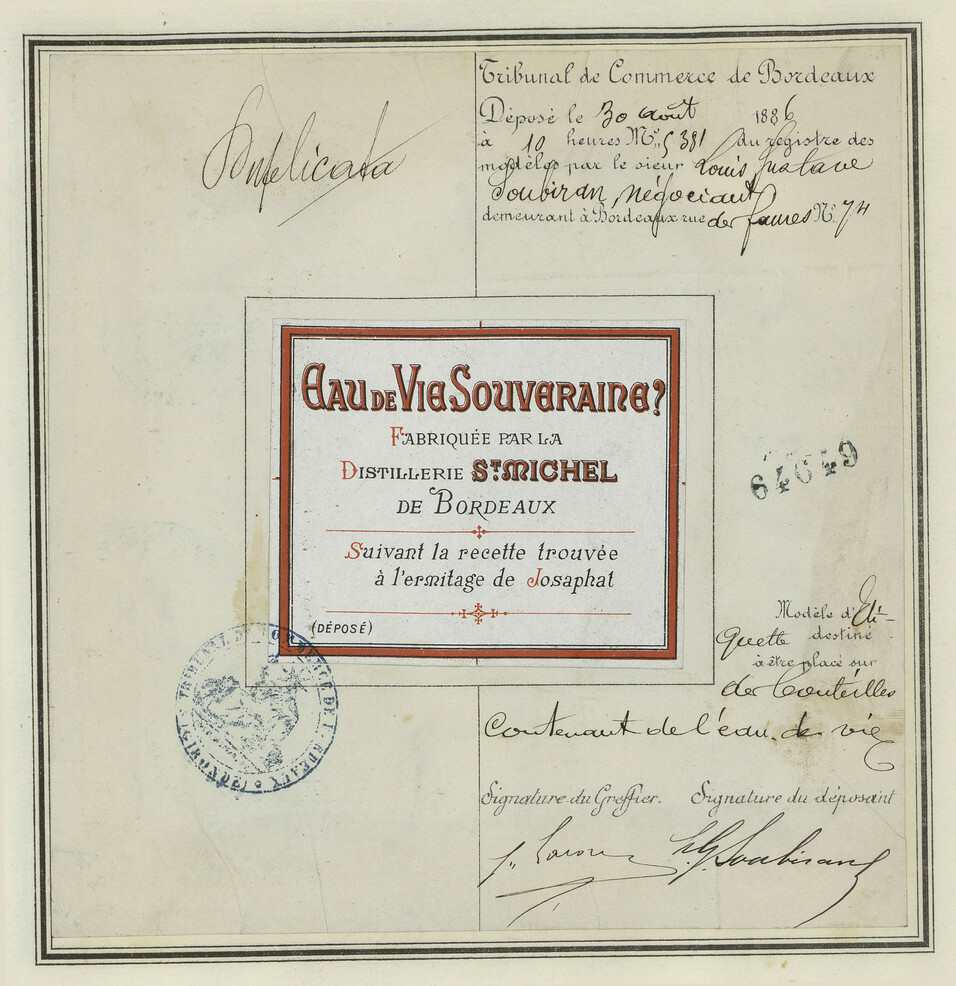 Duplicata
Tribunal de Commerce de Bordeaux
Déposé le 30 août 1886
à 10 heures N° 5381 du registre des
modèles par le sieur Louis Gustave
Soubiran, négociant
demeurant à Bordeaux rue de N° 74
EAU DE VIE SOUVERAINE?
FABRIQUÉE PAR LA
DISTILLERIE ST MICHEL
DE BORDEAUX
Suivant la recette trouvée
à l'ermitage de Josaphat
(DÉPOSÉ)
64649
Modèle d'Eti-
quette destiné
à être placé sur
des bouteilles
contenant de l'eau de vie
TRIBUNAL DE COMMERCE DE BORDEAUX (GIRONDE)
Signature du Greffier. Signature du déposant
L.G. Soubiran